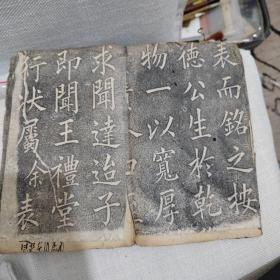 表而銘之按
德公生於乾
物一以寬厚
求聞達迨子
即聞王禮堂
行狀屬余表